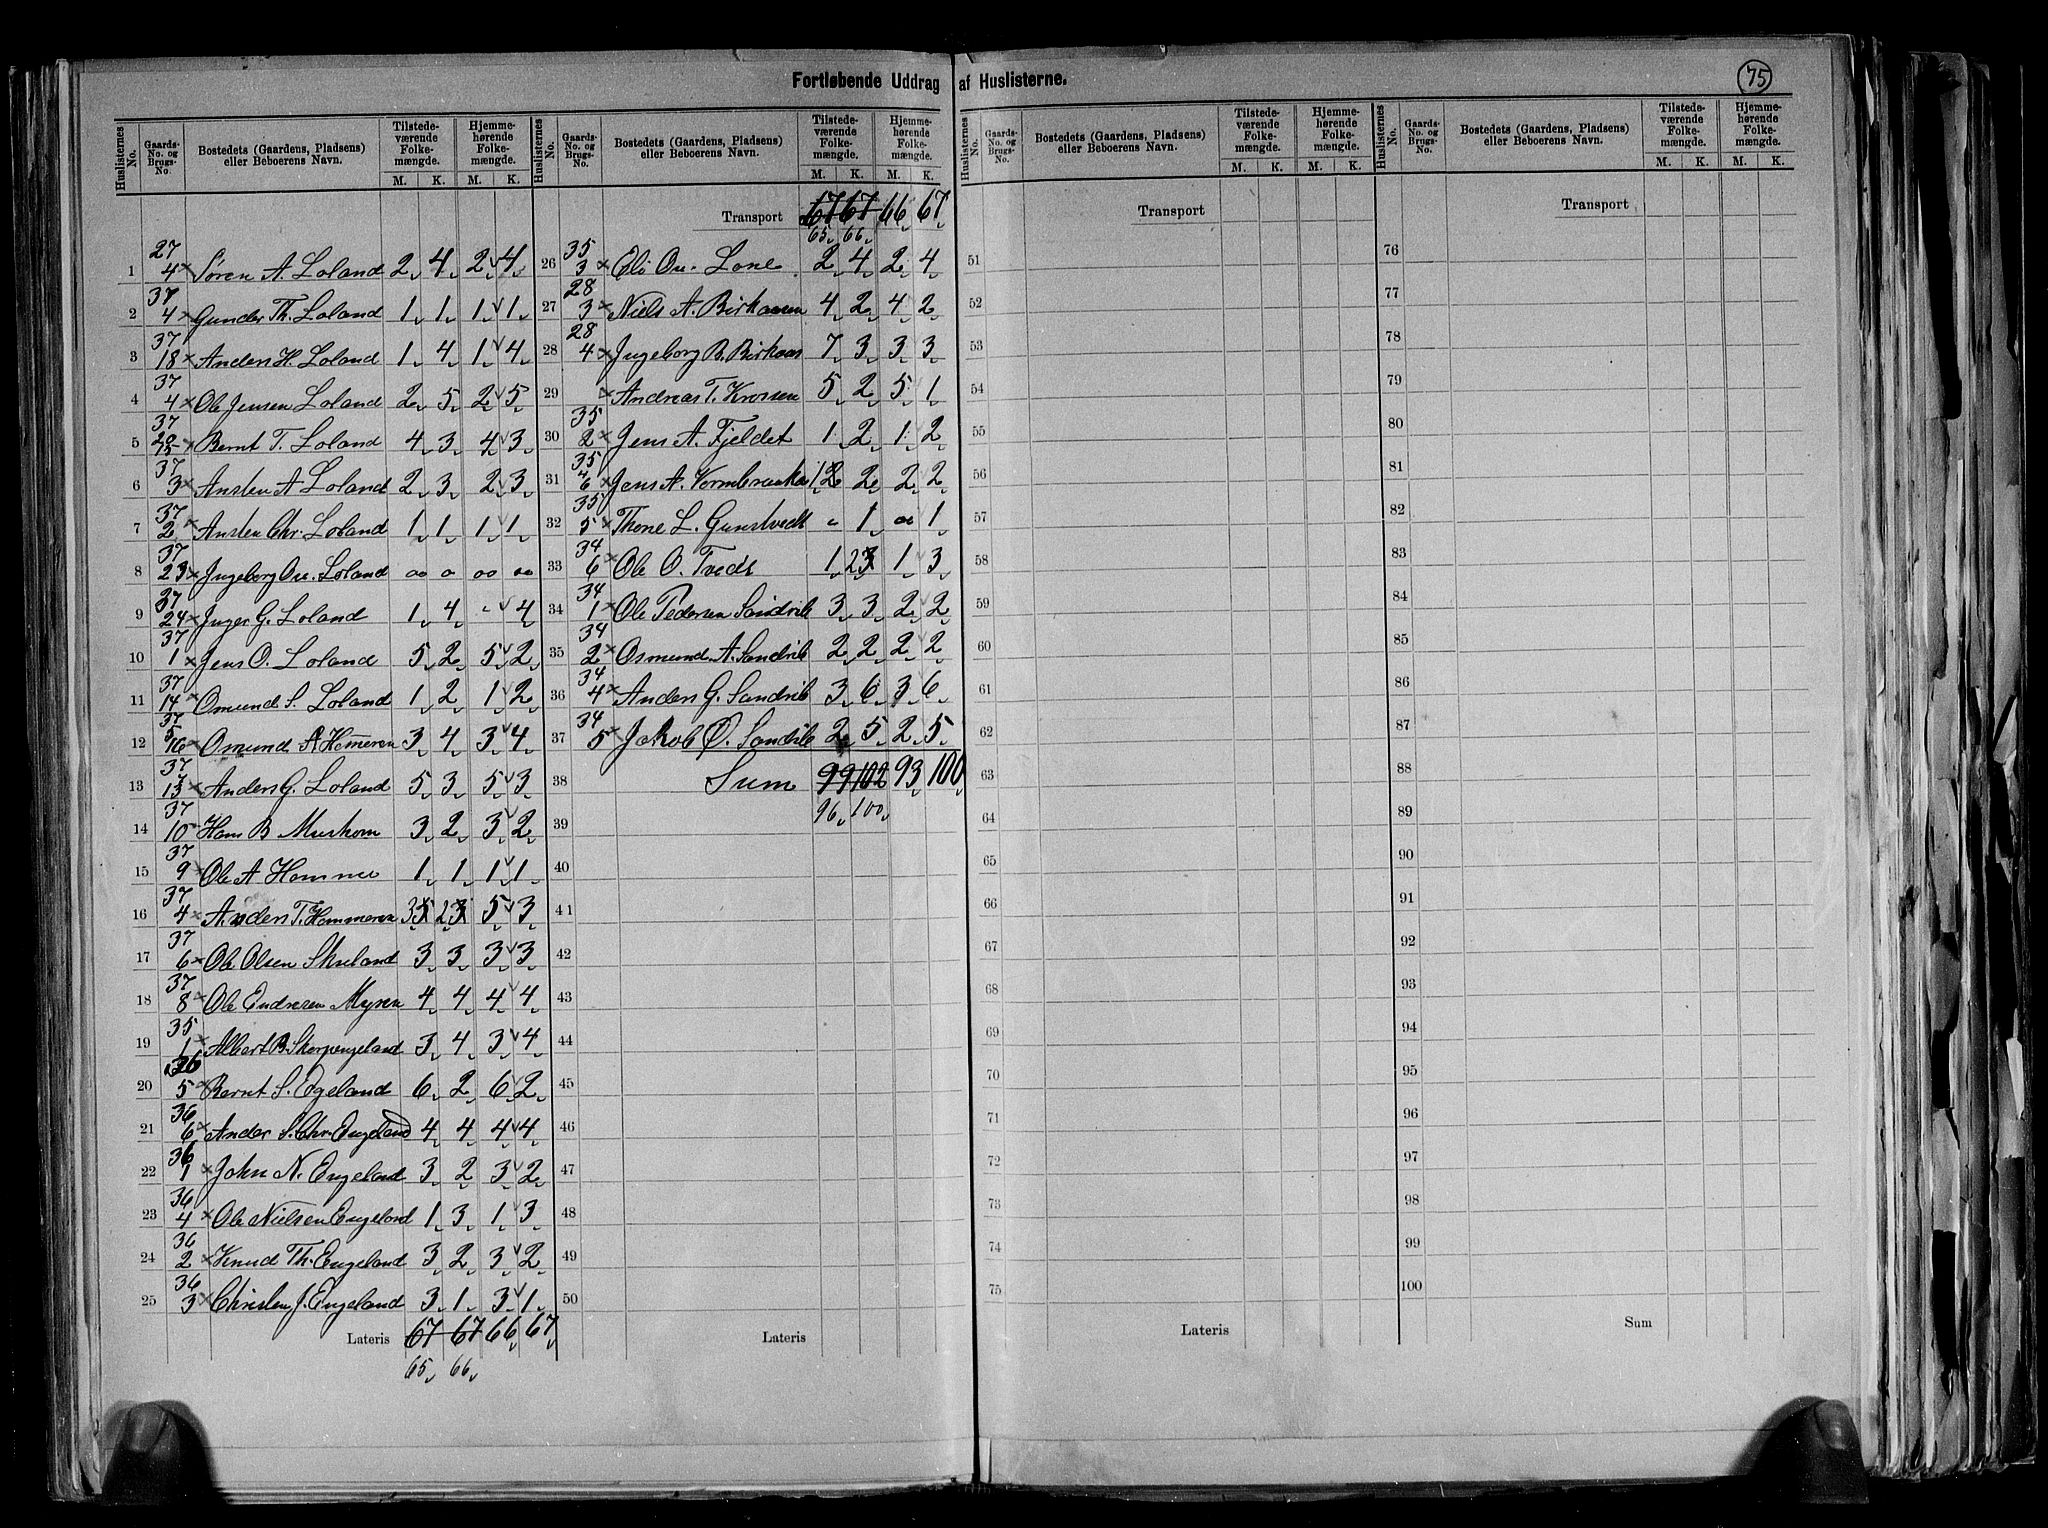 Fortløbende Uddrag af Huslisterne.
75
Huslisternes No. Gaards-No. og Brugs-No. Bostedets (Gaardens, Pladsens) eller Beboerens Navn. Tilstedeværende Folkemængde. M. K. Hjemmehørende Folkemængde. M. K.
Huslisternes No. Gaards-No. og Brugs-No. Bostedets (Gaardens, Pladsens) eller Beboerens Navn. Tilstedeværende Folkemængde. M. K. Hjemmehørende Folkemængde. M. K.
Huslisternes No. Gaards-No. og Brugs-No. Bostedets (Gaardens, Pladsens) eller Beboerens Navn. Tilstedeværende Folkemængde. M. K. Hjemmehørende Folkemængde. M. K.
Huslisternes No. Gaards-No. og Brugs-No. Bostedets (Gaardens, Pladsens) eller Beboerens Navn. Tilstedeværende Folkemængde. M. K. Hjemmehørende Folkemængde. M. K.
1 27 4 × Søren A. Loland 2 4 2 4
2 37 4 × Gunder Th. Loland 1 1 1 1
3 37 18 × Anders H. Loland 1 4 1 4
4 37 4 × Ole Jensen Loland 2 5 2 5
5 37 × Bernt T. Loland 4 3 4 3
6 37 3 × Ansten A Loland 2 3 2 3
7 37 2 × Ansten Chr. Loland 1 1 1 1
8 37 23 × Ingeborg Loland
9 37 24 × Inger G. Loland 1 4 - 4
10 37 1 × Jens O. Loland 5 2 5 2
11 37 14 × Omund S. Loland 1 2 1 2
12 37 16 × Omund A Homeren 3 4 3 4
13 37 13 × Anders G. Loland 5 3 5 3
14 37 10 × Hans B 3 2 3 2
15 37 9 × Ole A 1 1 1 1
16 37 4 × Anders T. Hommeren 35 23 5 3
17 37 6 × Ole Olsen 3 3 3 3
18 37 8 × Ole Endresen Myren 4 4 4 4
19 35 1 × Albert B. Skorpengeland 3 4 3 4
20 36 5 × Bernt S. Egeland 6 2 6 2
21 36 6 × Ander S. Chr. Engeland 4 4 4 4
22 36 1 × John N. Engeland 3 2 3 2
23 36 4 × Ole Nielsen Engeland 1 3 1 3
24 36 2 × Knud Th. Engeland 3 2 3 2
25 36 3 × Christen J. Engeland 3 1 3 1
Lateris 67 67 66 67
65 66
Transport 67 67 66 67
65 66
26 35 3 × Eli Lone 2 4 2 4
27 28 3 × Niels A. 4 2 4 2
28 28 4 × Ingeborg B. Birkaas 7 3 3 3
29 × Andreas T. Krossen 5 2 5 1
30 35 2 × Jens A. Fjeldet 1 2 1 2
31 35 6 × Jens A. 12 2 2 2
32 35 5 × Thone L. Gunstvedt 1 1
33 34 6 × Ole O. Tvedt 1 23 1 3
34 34 1 × Ole Pedersen Sandvik 3 3 2 2
35 34 2 × Osmund A. Sandvik 2 2 2 2
36 34 4 × Anders G. Sandvik 3 6 3 6
37 34 5 × Jakob O. Sandvik 2 5 2 5
38 Sum 99 102 93 100
96 100
39
40
41
42
43
44
45
46
47
48
49
50
Lateris
Transport
51
52
53
54
55
56
57
58
59
60
61
62
63
64
65
66
67
68
69
70
71
72
73
74
75
Lateris
Transport
76
77
78
79
80
81
82
83
84
85
86
87
88
89
90
91
92
93
94
95
96
97
98
99
100
Sum